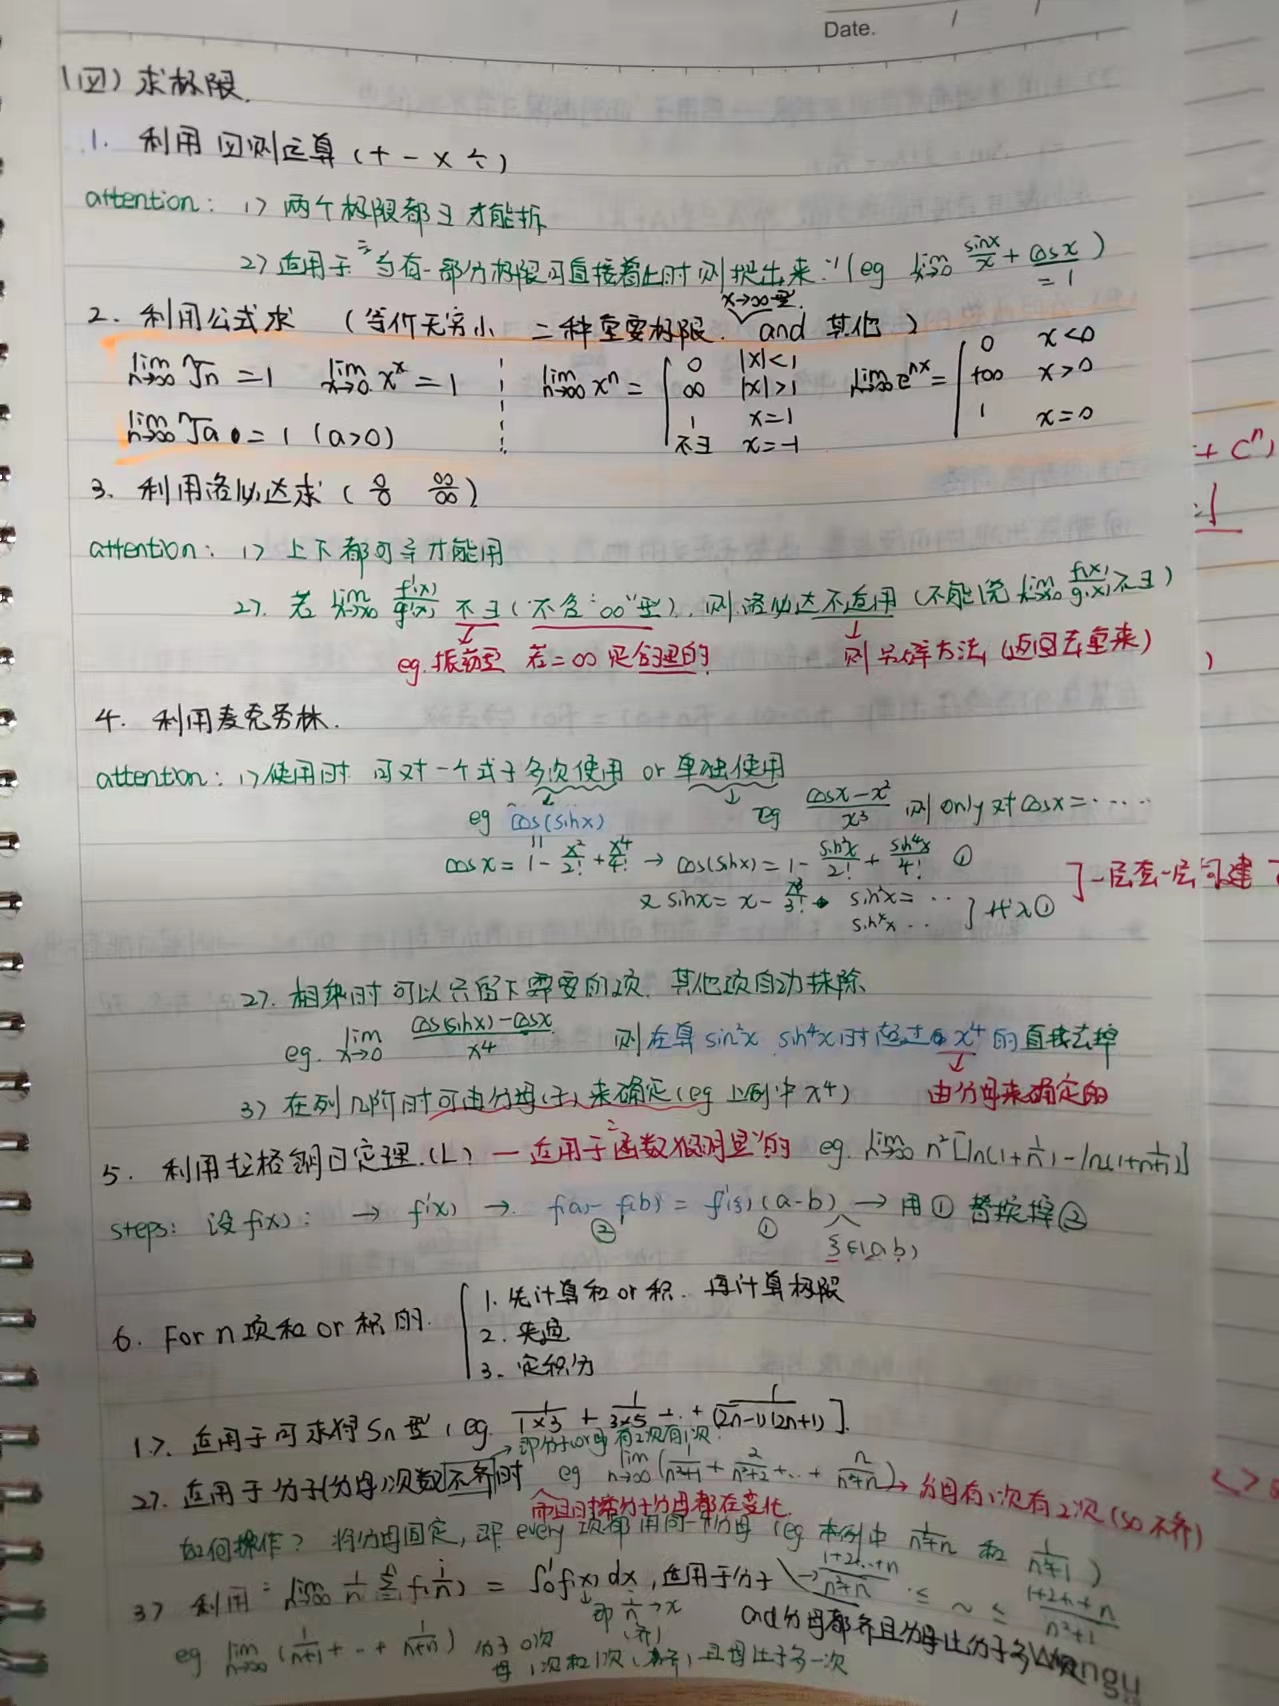 Date. / /
(四) 求极限.
1. 利用四则运算 (+ - × ÷)
attention: 1> 两个极限都∃才能拆
2> 适用于"当有一部分极限可直接看出时则提出来"(eg lim x→0 sinx/x + cosx/=1)
x→∞型.
2. 利用公式求 (等价无穷小 二种重要极限. and 其他)
lim n→∞ ⁿ√n = 1 lim x→0 xˣ = 1 lim n→∞ xⁿ = { 0 |x|<1 ∞ |x|>1 1 x=1 不∃ x=-1 lim n→∞ eⁿˣ = { 0 x<0 +∞ x>0 1 x=0
lim n→∞ ⁿ√a = 1 (a>0)
+ Cⁿ)
3. 利用洛必达求 (0/0 ∞/∞)
attention: 1> 上下都可导才能用
2>. 若 lim x→x₀ f'(x)/g'(x) 不∃ (不含"∞"型). 则洛必达不适用 (不能说 lim x→x₀ f(x)/g(x) 不∃)
eg. 振荡型 若=∞ 是合理的 则另辟方法 (返回去重来)
4. 利用麦克劳林.
attention: 1> 使用时 可对一个式子多次使用 or 单独使用
eg cos(sinx) eg (cosx-x²)/x³ 则 only 对 cosx = ·····
cosx = 1 - x²/2! + x⁴/4! → cos(sinx) = 1 - sin²x/2! + sin⁴x/4! ①
又 sinx = x - x³/3! sin²x = ·· sin⁴x ·· } 代入① ] 一层套一层可建
2>. 相乘时可以只留下需要的项. 其他项自动抹除
eg. lim x→0 (cos(sinx) - cosx)/x⁴ 则在算 sin²x sin⁴x 时超过 x⁴ 的直接去掉
3> 在列几阶时可由分母(子)来确定 (eg 上例中 x⁴) 由分母来确定的
5. 利用拉格朗日定理.(L) — 适用于"函数很明显"的 eg. lim n→∞ n²[ln(1+1/n) - ln(1+1/(n+1))]
steps: 设 f(x): → f'(x) → f(a)-f(b) = f'(ξ)(a-b) → 用①替换掉②
② ① ξ∈(a,b)
6. For n 项和 or 积的. { 1. 先计算和 or 积. 再计算极限
2. 夹逼
3. 定积分
1>. 适用于可求得 Sn 型 (eg. 1/(1×3) + 1/(3×5) + ·· + 1/((2n-1)(2n+1))].
→ 即分子or母有2次有1次
2>. 适用于分子(分母)次数不齐时 eg lim n→∞ (1/(n²+1) + 2/(n²+2) + ·· + n/(n²+n)) → 分母有1次有2次 (so 不齐)
而且时常分子分母都在变化.
如何操作? 将分母固定, 即 every 项都用同一个分母 (eg 本例中 1/(n²+n) 和 1/(n²+1))
→ (1+2+..+n)/(n²+n) ≤ ~ ≤ (1+2+..+n)/(n²+1)
3> 利用"lim n→∞ 1/n Σ f(i/n) = ∫₀¹ f(x) dx, 适用于分子 and 分母都齐且分母比分子多一次
↓ 即 i/n → x (齐)
eg lim n→∞ (1/(n+1) + ·· + 1/(n+n)) 分子0次
母1次和1次 (齐) 且母比子多一次
Wangu